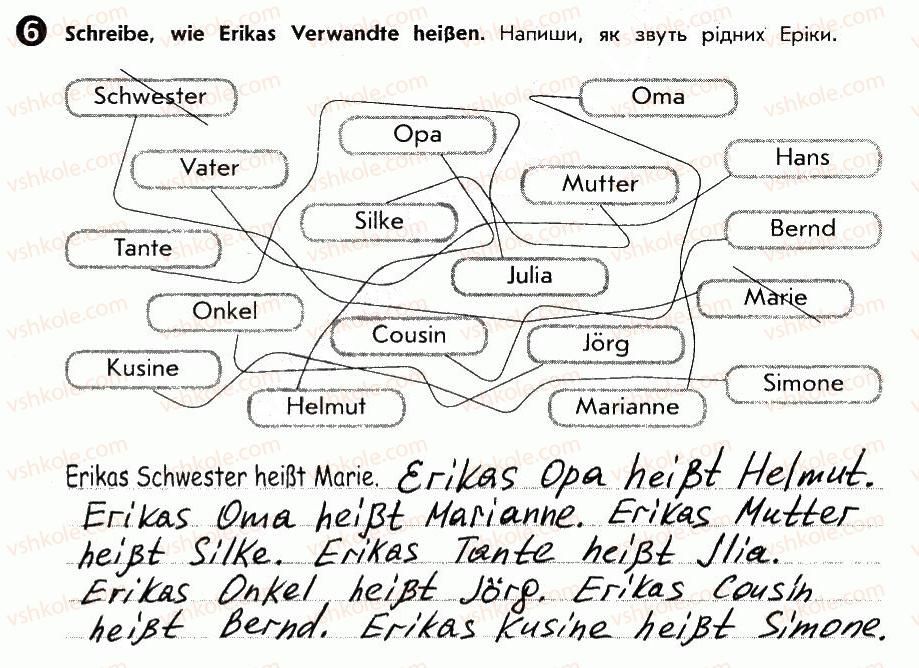 6 Schreibe, wie Erikas Verwandte heißen. Напиши, як звуть рідних Еріки.
Schwester
Oma
Opa
Hans
Vater
Mutter
Silke
Bernd
Tante
Julia
Marie
Onkel
Cousin
Jörg
Kusine
Simone
Helmut
Marianne
Erikas Schwester heißt Marie. Erikas Opa heißt Helmut.
Erikas Oma heißt Marianne. Erikas Mutter
heißt Silke. Erikas Tante heißt Jlia.
Erikas Onkel heißt Jörg. Erikas Cousin
heißt Bernd. Erikas Kusine heißt Simone.
vshkole.com